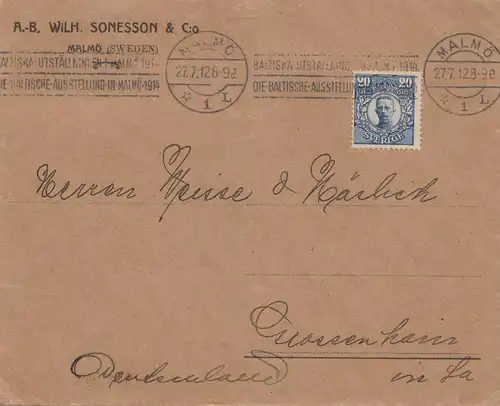 A.-B. WILH. SONESSON & C:o
MALMÖ (SWEDEN)
BALTISKA UTSTÄLLNINGEN I MALMÖ 1914
DIE-BALTISCHE-AUSSTELLUNG-IN-MALMÖ-1914
MALMÖ
27.7.12.8-9F
* 1 L
BALTISKA-UTSTÄLLNING MALMÖ 1914
DIE-BALTISCHE-AUSSTELL
MALMÖ
27.7.12.8-9F
* 1 L
20 20
SVERIGE
Herren Weisse & Härlich
Grossenhain
Deutschland in Sa